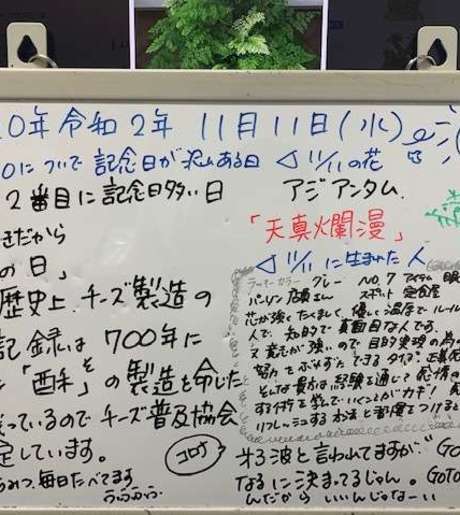 0年 令和2年 11月11日(水)
0について記念日が沢山ある日
2番目に記念日多い日
きだから
の日」
歴史上、チーズ製造の
記録は700年に
「酥」そ の製造を命じた
っているのでチーズ普及協会
定しています。
毎日たべてます
うふふふ
◁ 11/11の花
アジアンタム
「天真爛漫」
◁ 11/11に生まれた人
ラッキーカラー グレー NO.7 アイテム 眼
パーソン 店員さん スポット 定食屋
芯が強くたくましく、優しい温厚で
人で、知的で真面目な人です。
又意志が強いので目的実現の為の
努力をおしまずできるタイプ。
そんな貴方は経験を通して感情の
する術を学んでいくことがカギ!
リフレッシュする方法を
コロナ
オ3波と言われてますが"GO
なるに決まってるじゃん。GOTO
んだからいいんじゃなーい